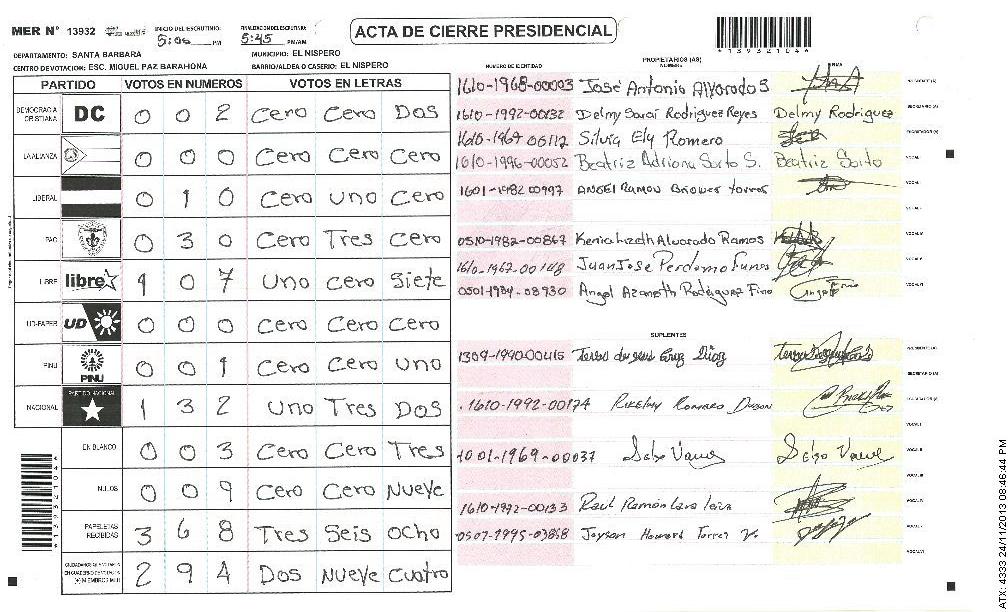 MER Nº 13932 INICIO DEL ESCRUTINIO: 5:06 PM FINALIZACION DEL ESCRUTINIO: 5:45 PM/AM
ACTA DE CIERRE PRESIDENCIAL
DEPARTAMENTO: SANTA BARBARA MUNICIPIO: EL NISPERO
CENTRO DE VOTACION: ESC. MIGUEL PAZ BARAHONA BARRIO/ALDEA O CASERIO: EL NISPERO
PARTIDO VOTOS EN NUMEROS VOTOS EN LETRAS
DEMOCRACIA CRISTIANA DC 0 0 2 Cero Cero Dos
LA ALIANZA 0 0 0 Cero Cero Cero
LIBERAL 0 1 0 Cero Uno Cero
PAC 0 3 0 Cero Tres Cero
LIBRE libre 1 0 7 Uno Cero Siete
UD-FAPER UD 0 0 0 Cero Cero Cero
PINU PINU 0 0 1 Cero Cero Uno
NACIONAL PARTIDO NACIONAL 1 3 2 Uno Tres Dos
EN BLANCO 0 0 3 Cero Cero Tres
NULOS 0 0 9 Cero Cero Nueve
PAPELETAS RECIBIDAS 3 6 8 Tres Seis Ocho
2 9 4 Dos Nueve Cuatro
NUMERO DE IDENTIDAD PROPIETARIOS (AS) NOMBRE FIRMA
1610-1968-00003 José Antonio Alvorado S
1610-1992-00132 Delmy Sarai Rodriguez Reyes Delmy Rodriguez
1610-1967 00112 Silvia Ely Romero
1610-1996-00052 Beatriz Adriana Sorto S. Beatriz Sorto
1601-1982 00997 ANGEL Ramon
0510-1982-00867 Kenia Lizeth Alvorado Ramos
1610-1962-00148 Juan Jose Perdomo Funes
0501-1984-08930 Angel Azarieth Rodriguez Fino
SUPLENTES
1309-1990-00415
1610-1992-00174 Romero
1001-1969-00037
1610-1992-00133 Raul Ramon Lara leiva
0507-1995-03868 Jeyson Howard Torrez
1 3 9 3 2 1 0 4 4
ATX: 4333 24/11/2013 08:46:44 PM